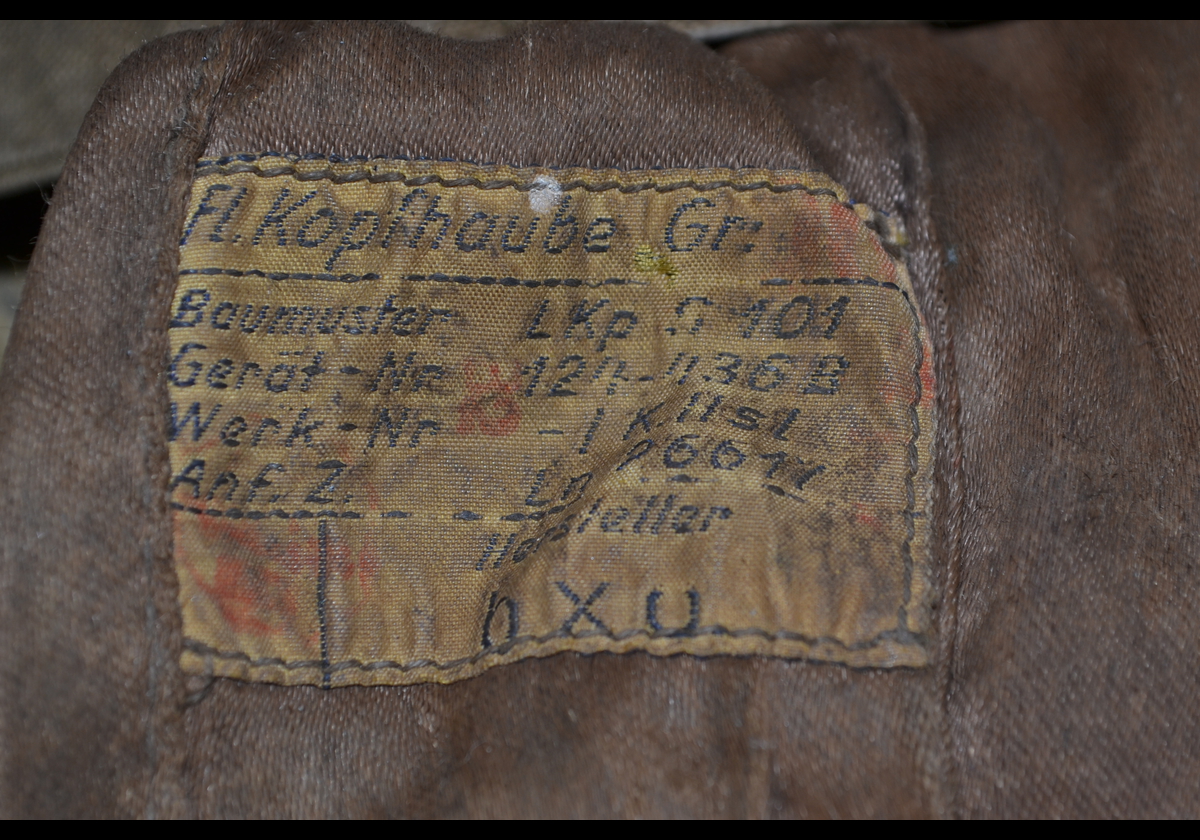 Fl. Kopfhaube Gr:
Baumuster LKp S 101
Gerät-Nr. 124-1136 B
Werk-Nr
Anf. Z. Ln 26611
Hersteller
bxu